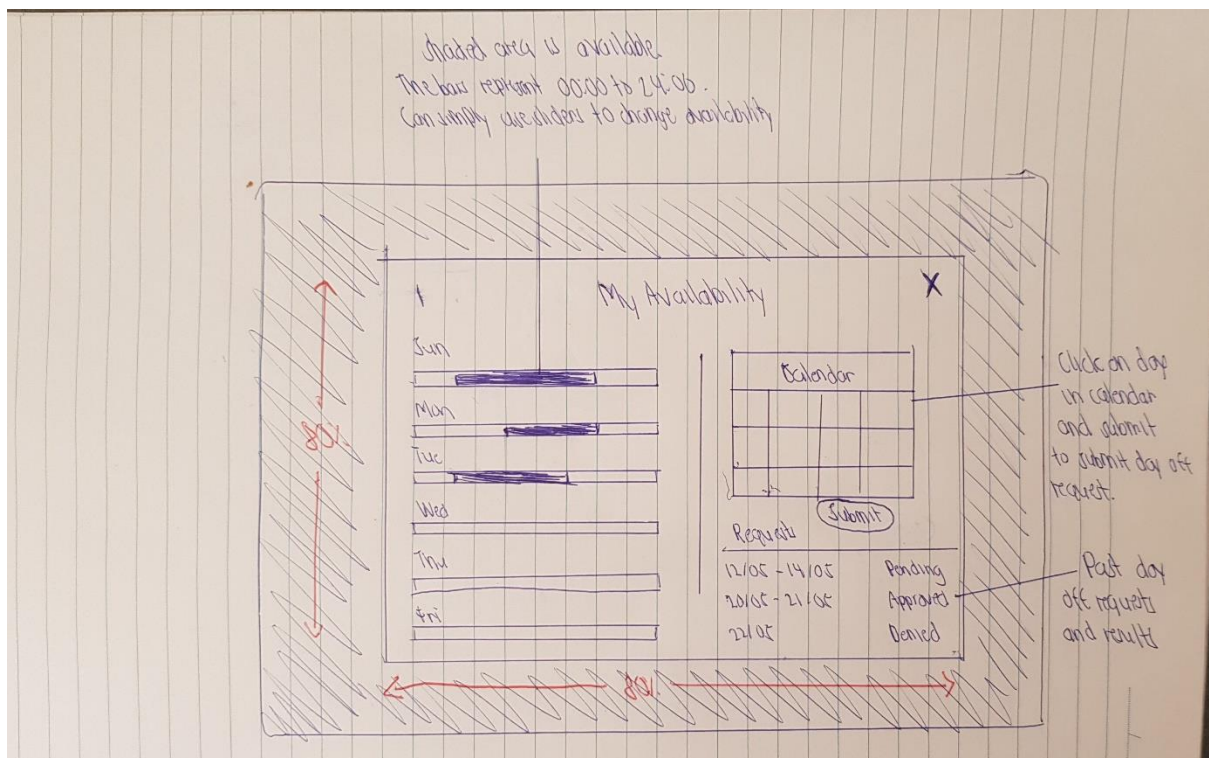 shaded area is available.
The bars represent 00:00 to 24:00.
Can simply use sliders to change availability
My Availability
X
Sun
Mon
Tue
Wed
Thu
Fri
80%
80%
Calendar
Submit
Requests
12/05 - 14/05 Pending
20/05 - 21/05 Approved
22/05 Denied
Click on day
in calendar
and submit
to submit day off
request.
Past day
off requests
and results